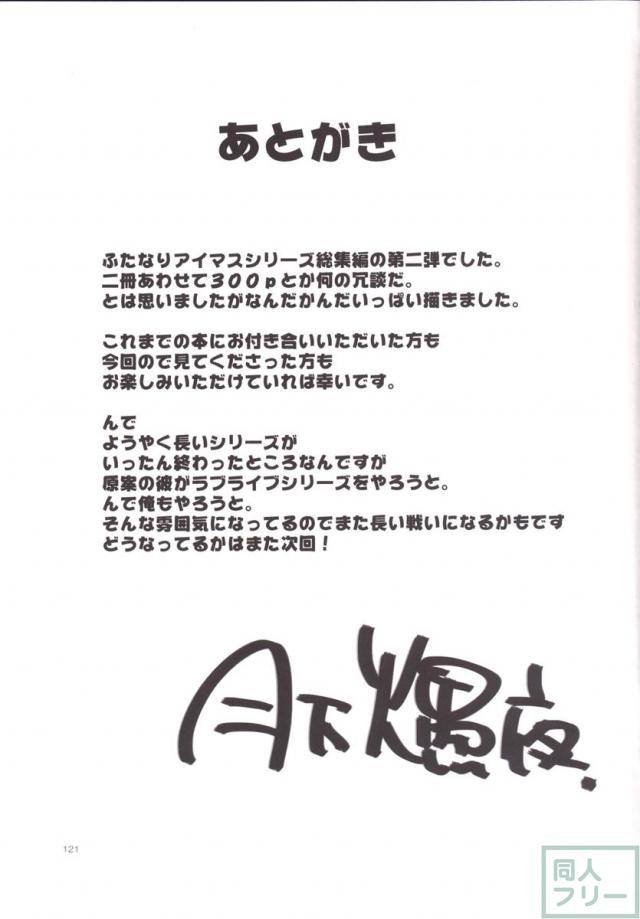 あとがき
ふたなりアイマスシリーズ総集編の第二弾でした。
二冊あわせて３００ｐとか何の冗談だ。
とは思いましたがなんだかんだいっぱい描きました。
これまでの本にお付き合いいただいた方も
今回ので見てくださった方も
お楽しみいただけていれば幸いです。
んで
ようやく長いシリーズが
いったん終わったところなんですが
原案の彼がラブライブシリーズをやろうと。
んで俺もやろうと。
そんな雰囲気になってるのでまた長い戦いになるかもです
どうなってるかはまた次回！
121
同人
フリー